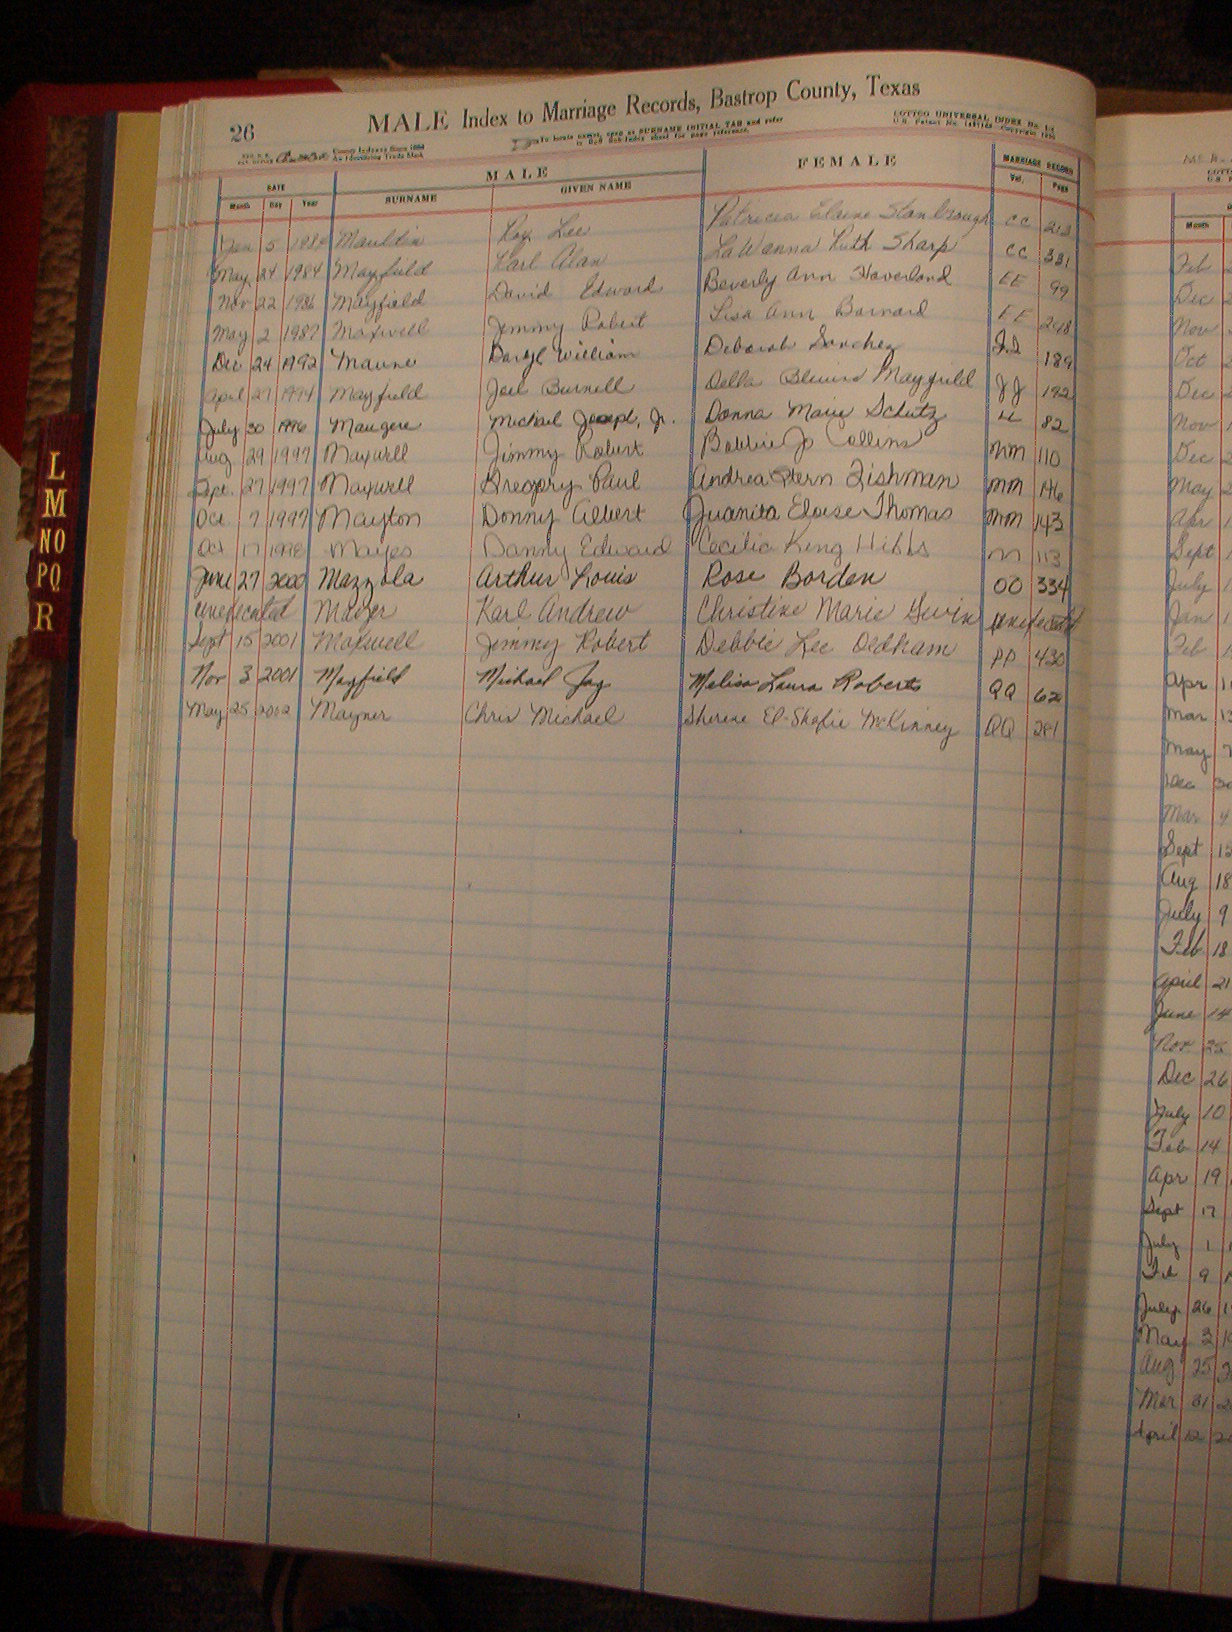 26
MALE Index to Marriage Records, Bastrop County, Texas
COTTCO UNIVERSAL INDEX
To locate names, open at SURNAME INITIAL TAB and refer
County Indexes Since 1888
An Identifying Trade Mark
DATE MALE FEMALE MARRIAGE RECORD
Month Day Year SURNAME GIVEN NAME Vol. Page
Jan 5 Mauldin Roy Lee Patricia Elaine Stanbrough CC 213
May 24 1984 Mayfield Karl Alan LaWanna Ruth Sharp CC 331
Nov 22 1986 Mayfield David Edward Beverly Ann Haverland EE 99
May 2 1987 Maxwell Jimmy Robert Lisa Ann Barnard EE 298
Dec 24 1992 Maune Daryl William Deborah Sanchez 189
April 27 1994 Mayfield Joel Burnell Della Blevins Mayfield JJ 192
July 30 1996 Maugere Michael Joseph, Jr. Donna Marie Schutz LL 82
Aug 29 1997 Maxwell Jimmy Robert Bobbie Jo Collins MM 110
Sept. 27 1997 Maxwell Gregory Paul Andrea Stern Fishman MM 146
Oct 7 1997 Mayton Donny Albert Juanita Eloise Thomas MM 143
Oct 17 1998 Mayes Danny Edward Cecilia King Hibbs 113
June 27 2000 Mazzola Arthur Louis Rose Borden OO 334
unexecuted Mauer Karl Andrew Christine Marie Gwin unexecuted
Sept 15 2001 Maxwell Jimmy Robert Debbie Lee Oldham PP 430
Nov 3 2001 Mayfield Michael Jay Melisa Laura Roberts QQ 62
May 25 2002 Mayner Chris Michael Sherene El-Shafie McKinney QQ 281
L
M
NO
PQ
R
Feb
Dec
Nov
Oct
Dec
Nov
Dec
May
Apr
Sept
July
Jan
Feb
Apr
Mar
May
Dec 30
Mar 4
Sept
Aug 18
July 9
Feb 18
April 21
June 14
Nov 25
Dec 26
July 10
Feb 14
Apr 19
Sept 17
July 1
Feb 9
July 26
May 3
Aug 25
Mar 31
April 12